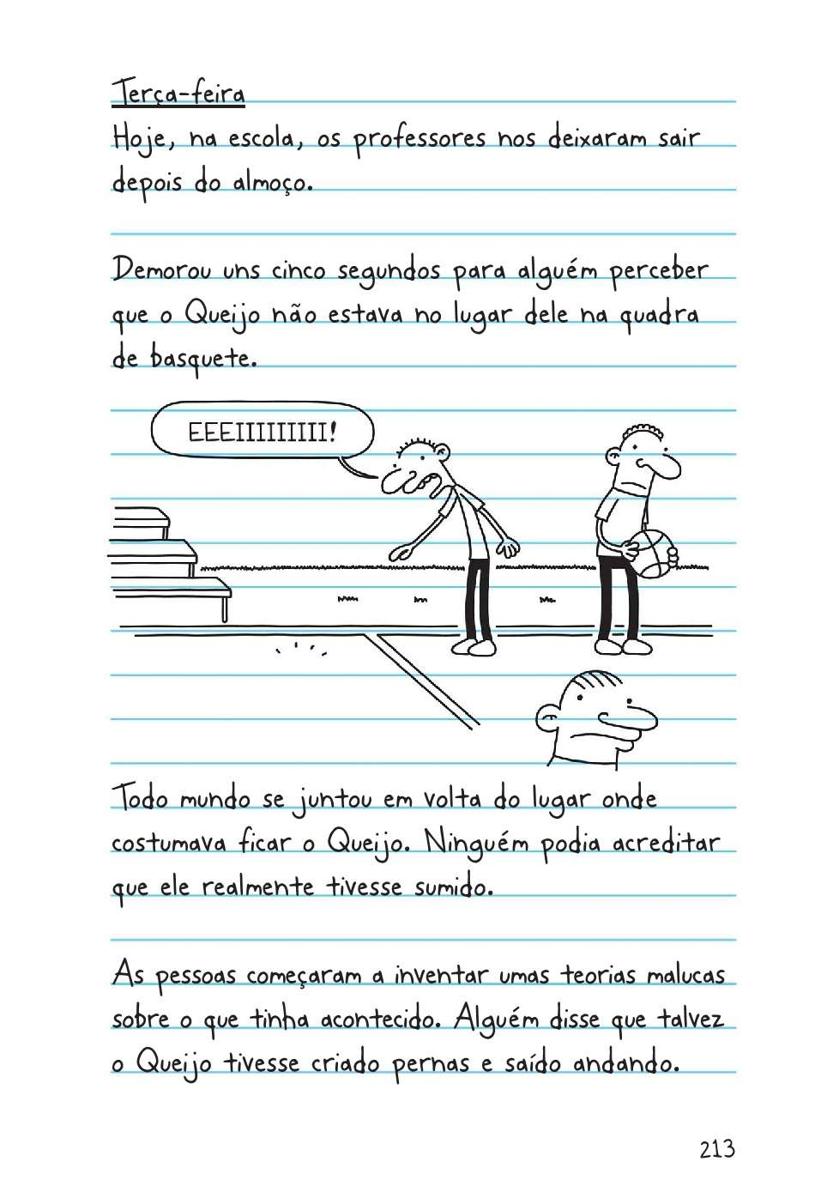 Terça-feira
Hoje, na escola, os professores nos deixaram sair
depois do almoço.
Demorou uns cinco segundos para alguém perceber
que o Queijo não estava no lugar dele na quadra
de basquete.
EEEIIIIIIIII!
Todo mundo se juntou em volta do lugar onde
costumava ficar o Queijo. Ninguém podia acreditar
que ele realmente tivesse sumido.
As pessoas começaram a inventar umas teorias malucas
sobre o que tinha acontecido. Alguém disse que talvez
o Queijo tivesse criado pernas e saído andando.
213